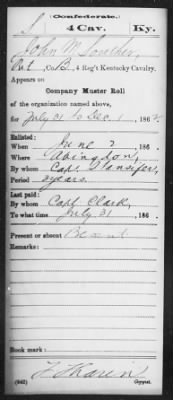 (Confederate.)
S 4 Cav. Ky.
John M. Souther,
Pvt, Co. B, 4 Reg't Kentucky Cavalry.
Appears on
Company Muster Roll
of the organization named above,
for July 31 to Dec. 1, 186
Enlisted:
When June 7, 186
Where Abingdon,
By whom Capt.
Period 3 years.
Last paid:
By whom Capt. Clark,
To what time July 31, 186 .
Present or absent
Remarks:
Book mark:
(642) Copyist.